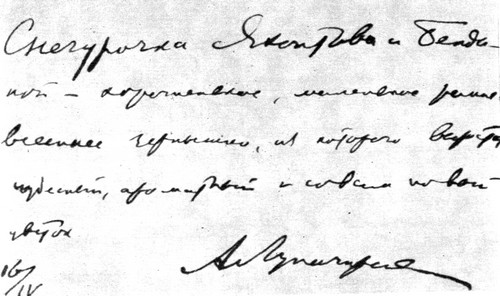 Снегурочка Яхонтова и
ной – коротенькое, маленькое
весеннее зернышко, из которого вырастет
чудесный, ароматный и совсем новый
цветок
16/IV А Луначарский